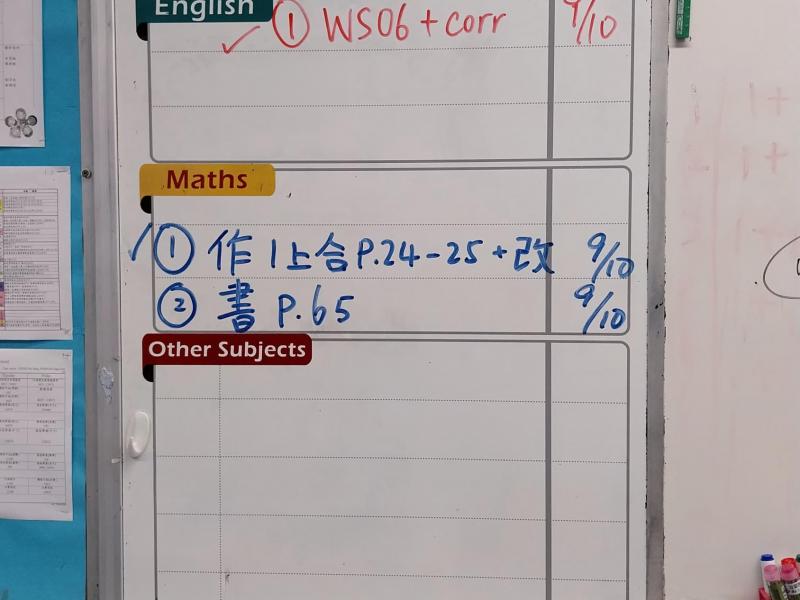 English
① WS06 + corr 9/10
Maths
① 作 1上合 P.24-25 + 改 9/10
② 書 P.65 9/10
Other Subjects